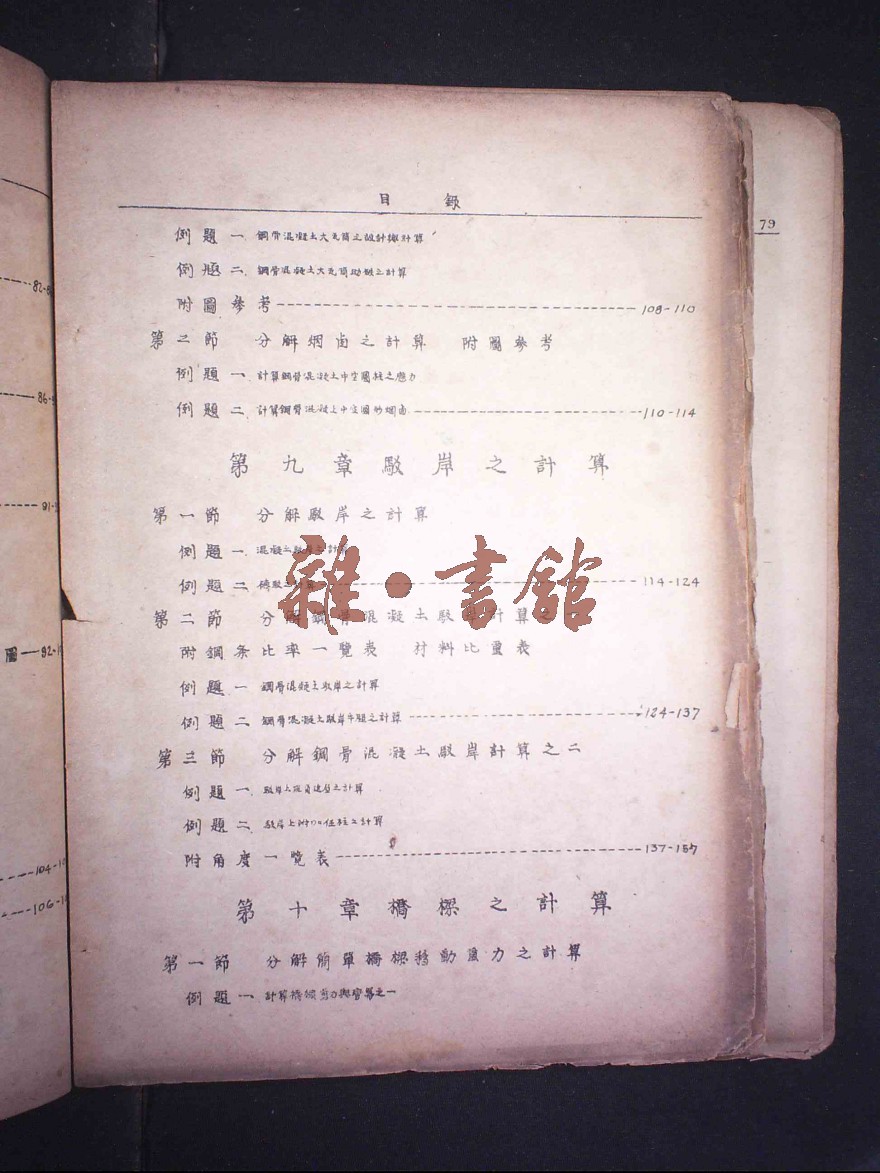 82-8
86-9
91-9
圖一92-1
104-10
106-1
目 錄
例題一. 鋼骨混凝土大瓦筒之設計與計算
例題二. 鋼骨混凝土大瓦筒助做之計算
附圖參考 108-110
第二節 分解烟囱之計算 附圖參考
例題一. 計算鋼骨混凝土中空圓柱之應力
例題二. 計算鋼骨混凝土中空圓的烟囱 110-114
第九章駁岸之計算
第一節 分解駁岸之計算
例題一. 混凝土駁岸之計算
例題二. 114-124
第二節 分解鋼骨混凝土駁岸計算之一
附鋼条比率一覽表 材料比重表
例題一 鋼骨混凝土駁岸之計算
例題二 鋼骨混凝土駁岸牛腿之計算 124-137
第三節 分解鋼骨混凝土駁岸計算之二
例題一. 駁岸上之計算
例題二. 駁岸上附加之計算
附角度一覽表 137-157
第十章橋樑之計算
第一節 分解簡單橋樑移動重力之計算
例題一. 計算橋樑剪力與彎冪之一
79
雜·書館